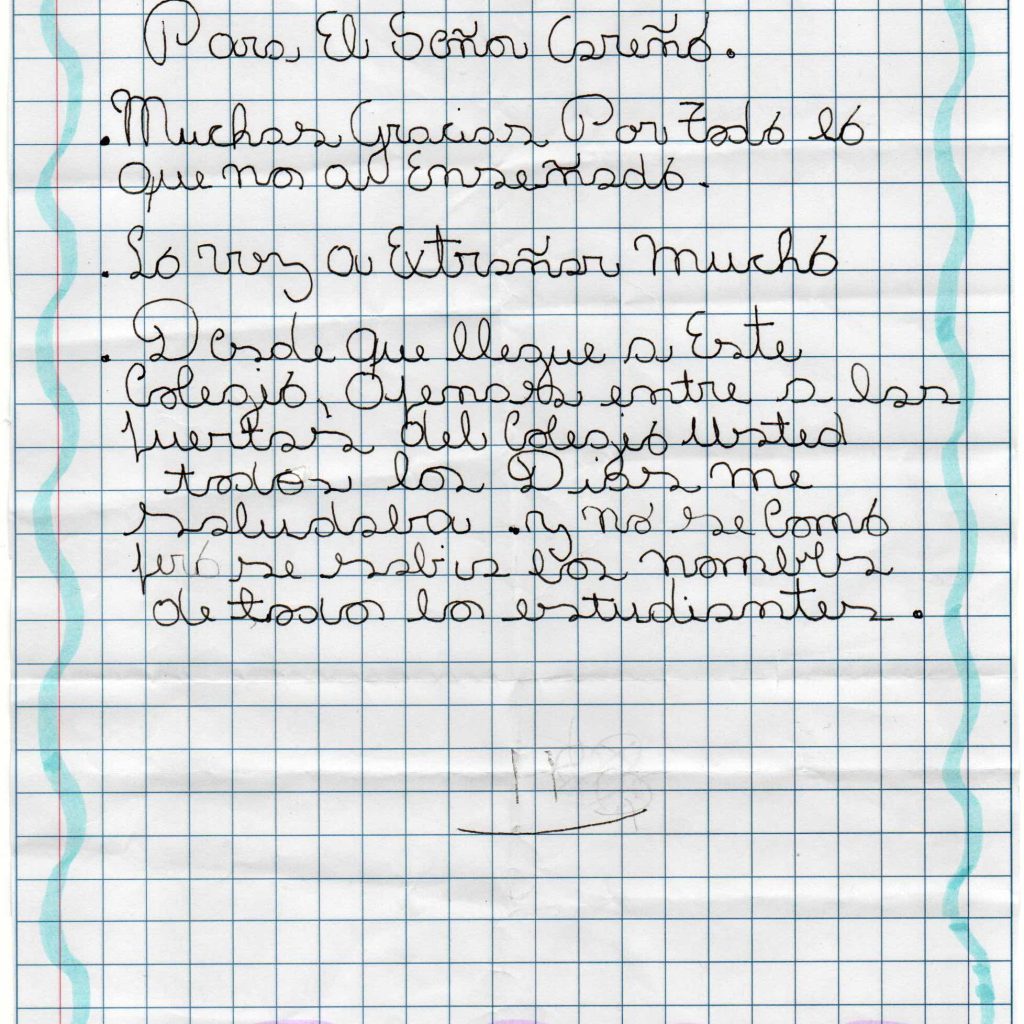 Para El Señor Careñó.
. Muchas Gracias Por todó ló
que no a Enseñadó.
. Ló voy a Extrañar muchó
. Desde que llegue a Este
Colegió, Apenas entre a las
puertas del Colegió Usted
todos los Dias me
saludaba . y nó se Comó
peró se sabia los nombres
de todo lo estudiantes.